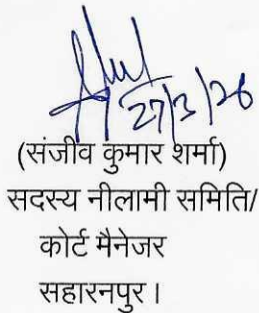 27/3/26
(संजीव कुमार शर्मा)
सदस्य नीलामी समिति/
कोर्ट मैनेजर
सहारनपुर।